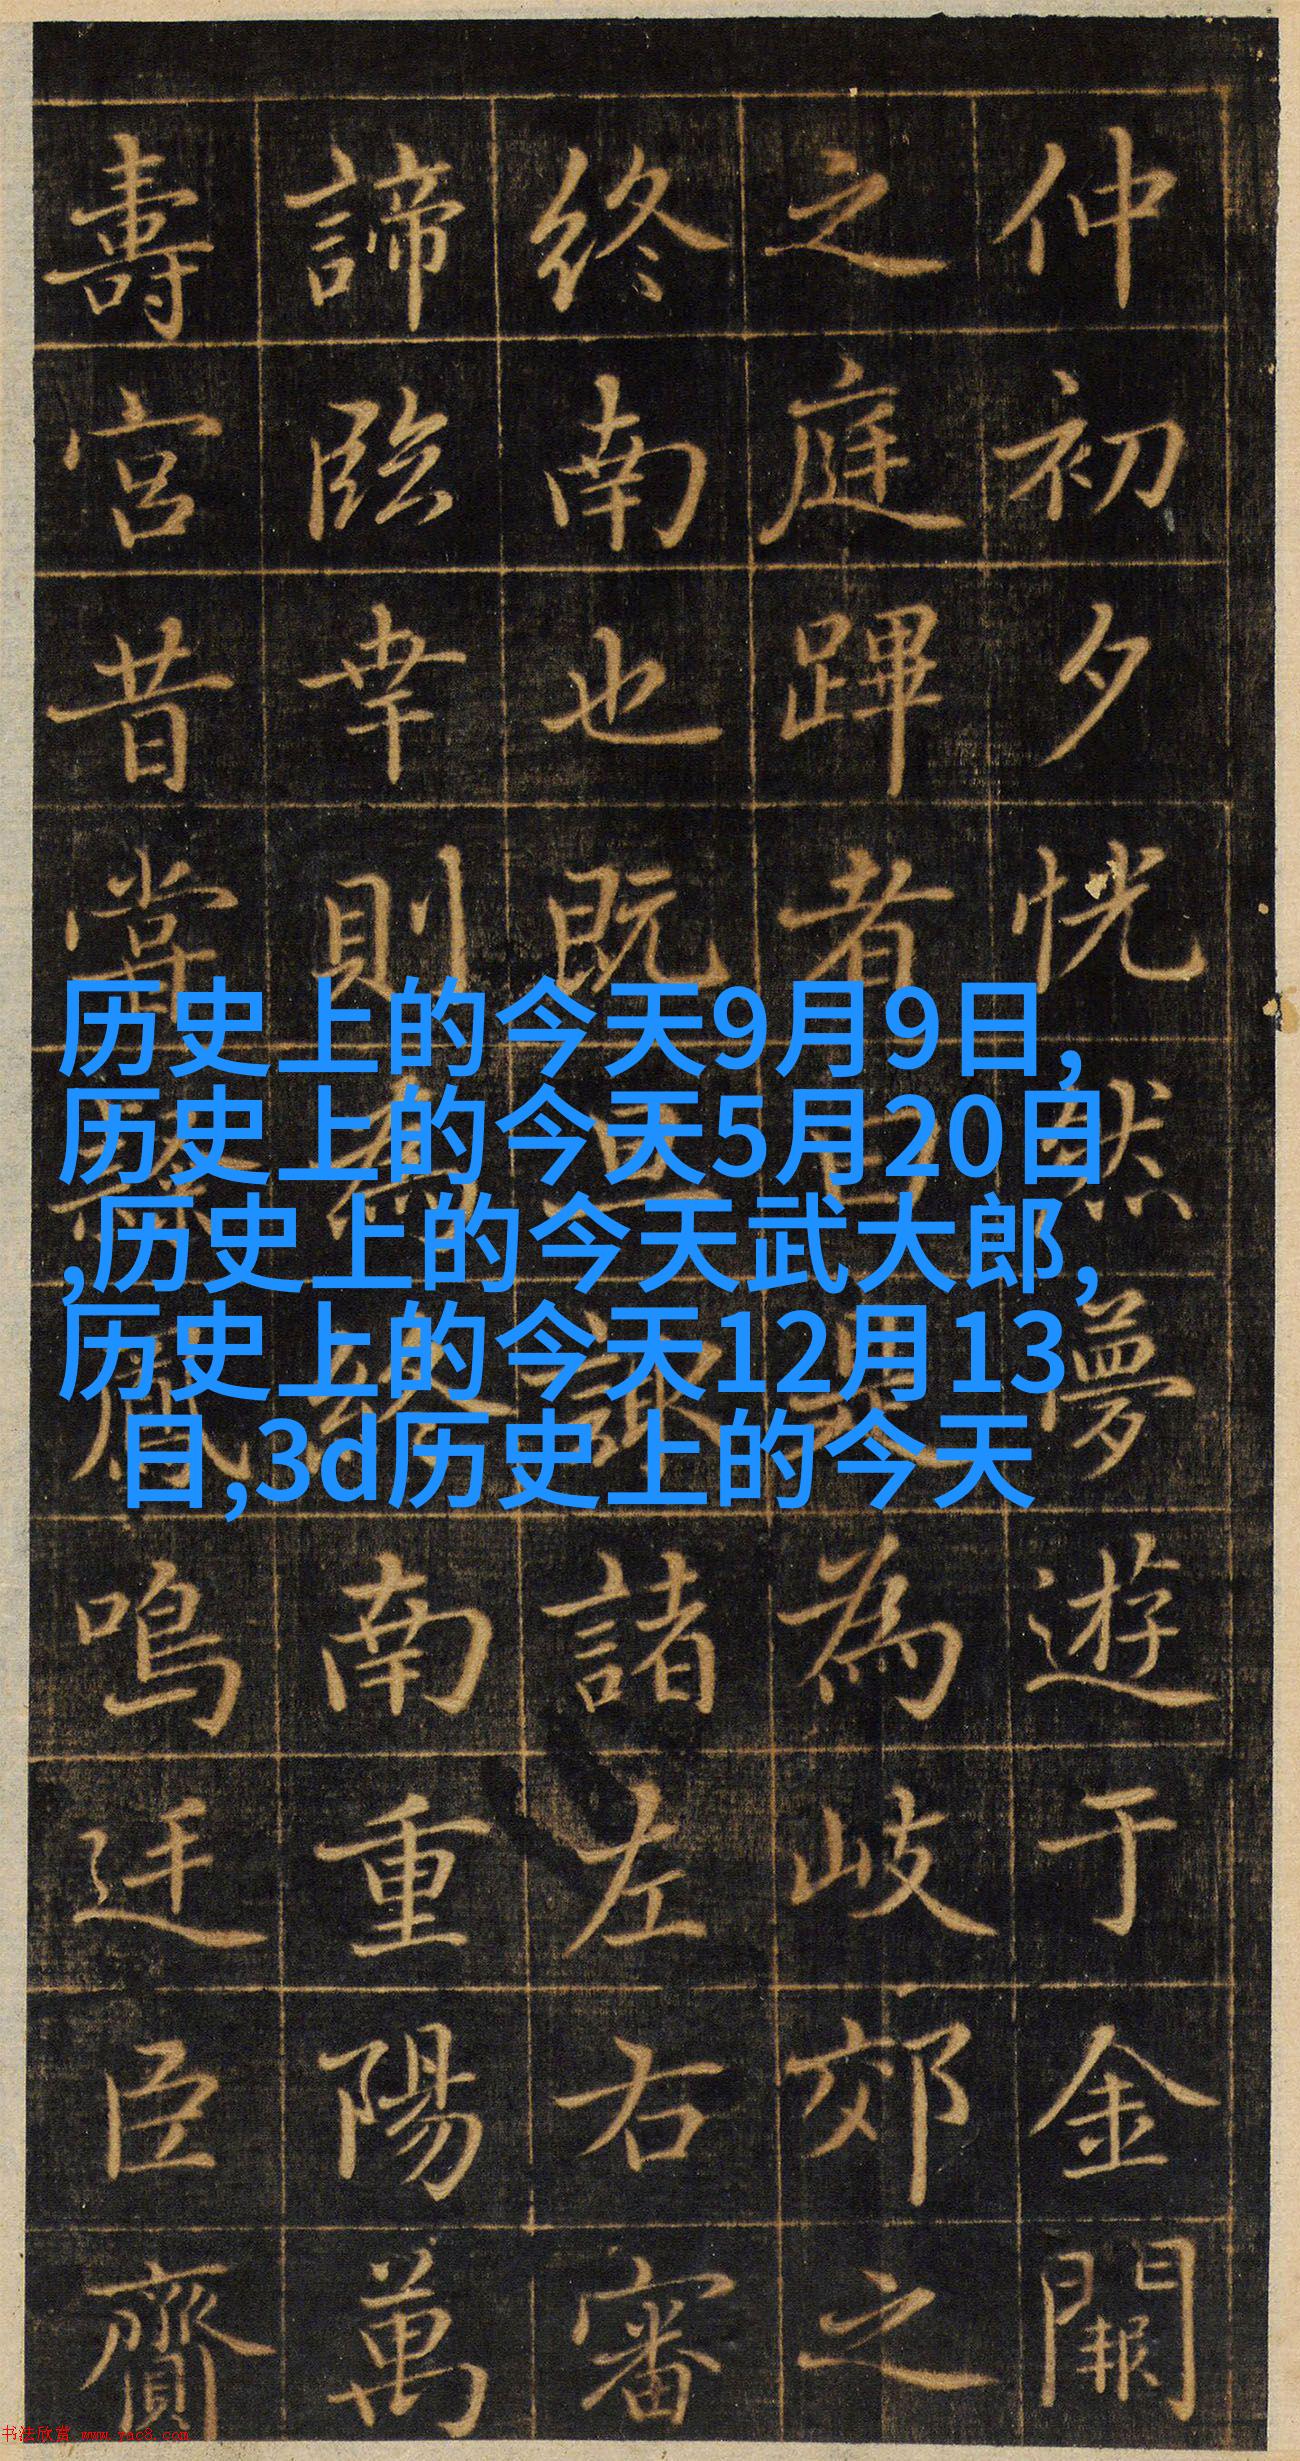 仲初夕恍然夢遊于金闕
之庭蹕者自為岐郊之
終南也既旦諸左右審
諦臨幸則為終南重陽萬
壽宮昔嘗鳴廷臣齎
历史上的今天9月9日,
历史上的今天5月20日
,历史上的今天武大郎,
历史上的今天12月13
日,3d历史上的今天
书法欣赏 www.yac8.com